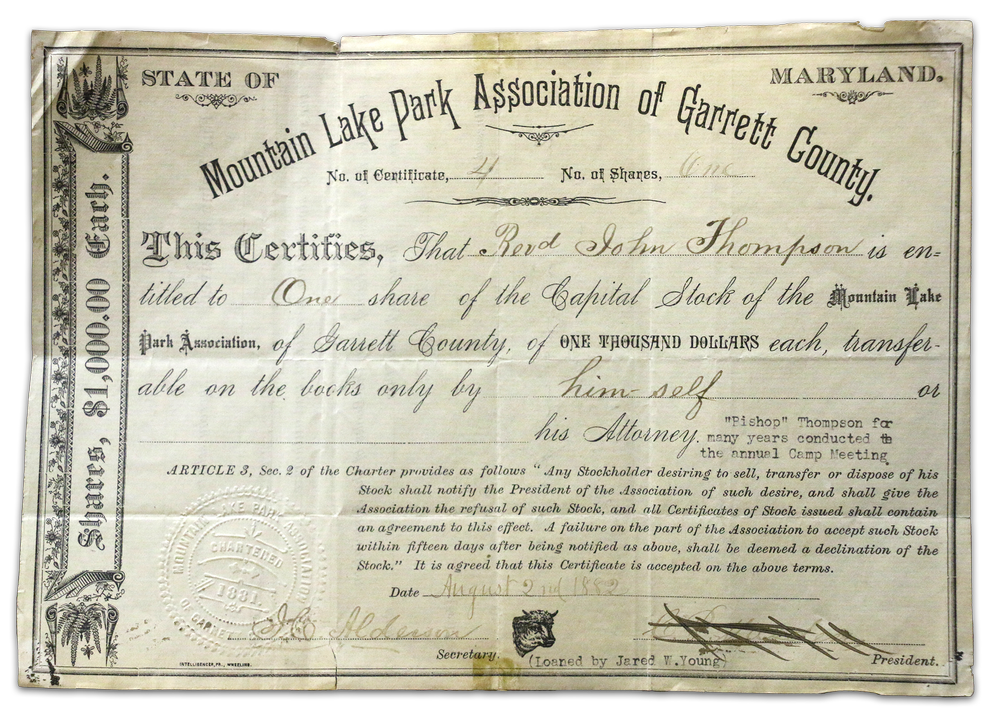 STATE OF
MARYLAND.
Mountain Lake Park Association of Garrett County.
No. of Certificate, 4 No. of Shares, One
Shares, $1,000.00 Each.
This Certifies, That Revd John Thompson is en=
titled to One share of the Capital Stock of the Mountain Lake
Park Association, of Garrett County, of ONE THOUSAND DOLLARS each, transfer-
able on the books only by him-self or
his Attorney.
"Bishop" Thompson for
many years conducted
the annual Camp Meeting
ARTICLE 3, Sec. 2 of the Charter provides as follows " Any Stockholder desiring to sell, transfer or dispose of his
Stock shall notify the President of the Association of such desire, and shall give the
Association the refusal of such Stock, and all Certificates of Stock issued shall contain
an agreement to this effect. A failure on the part of the Association to accept such Stock
within fifteen days after being notified as above, shall be deemed a declination of the
Stock." It is agreed that this Certificate is accepted on the above terms.
MOUNTAIN LAKE PARK ASSOCIATION
CHARTERED
1881
Date August 2nd 1882
Secretary.
(Loaned by Jared W.Young)
President.
INTELLIGENCER, PR., WHEELING.